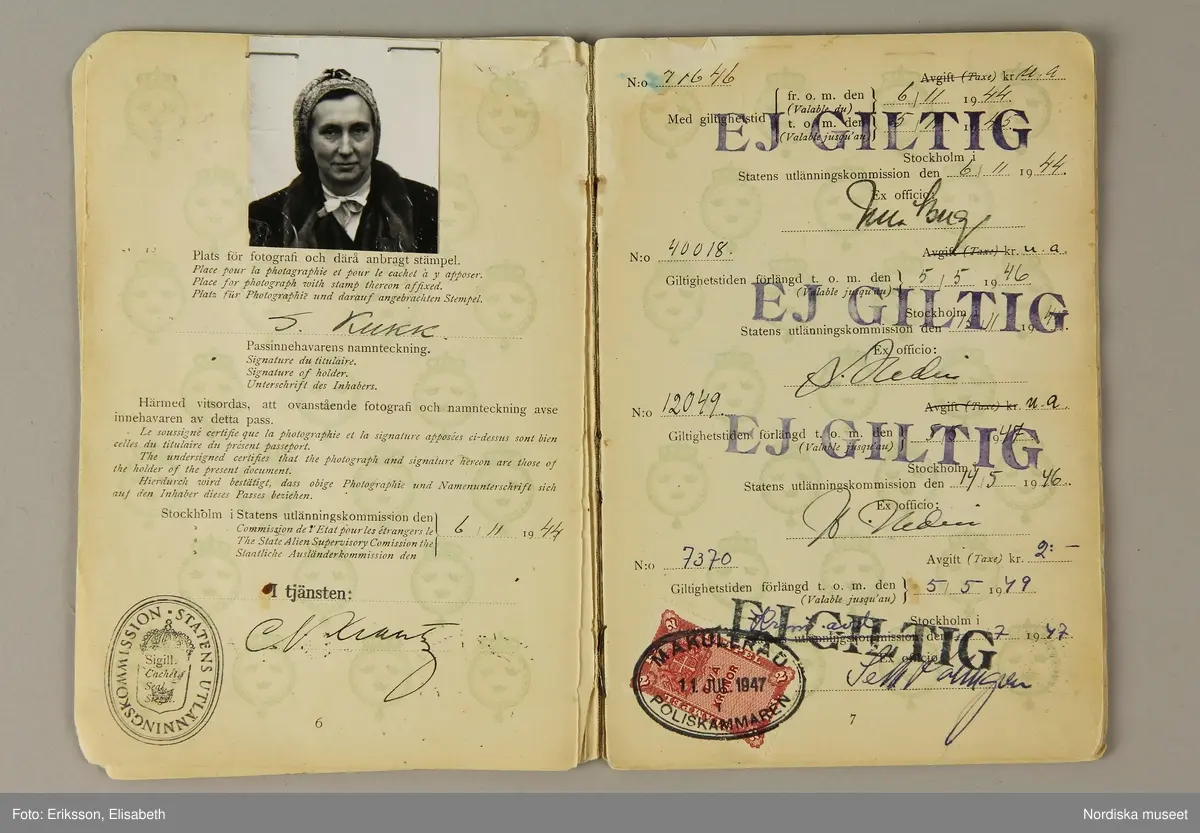 Plats för fotografi och därå anbragt stämpel.
Place pour la photagraphie et pour le cachet à y apposer.
Place for photograph with stamp thereon affixed.
Platz für Photographie und darauf angebrachten Stempel.
S. Kukk.
Passinnehavarens namnteckning.
Signature du titulaire.
Signature of holder.
Unterschrift des Inhabers.
Härmed vitsordas, att ovanstående fotografi och namnteckning avse
innehavaren av detta pass.
Le soussigné certifie que la photographie et la signature apposées ci-dessus sont bien
celles du titulaire du présent passeport.
The undersigned certifies that the photograph and signature hereon are those of
the holder of the present document.
Hierdurch wird bestätigt, dass obige Photographie und Namenunterschrift sich
auf den Inhaber dieses Passes beziehen.
Stockholm i Statens utlänningskommission den
Commission de l'Etat pour les étrangers le
The State Alien Supervisory Comission the
Staatliche Ausländerkommission den
6 / 11 1944
I tjänsten:
STATENS UTLÄNNINGSKOMMISSION
Sigill.
Cachet
Seal
6
N:o 71646 Avgift (Taxe) kr u.a
Med giltighetstid
fr. o. m. den 6 / 11 1944
(Valable du)
t. o. m. den 5
(Valable jusqu'au)
EJ GILTIG
Stockholm i
Statens utlänningskommission den 6 / 11 1944.
Ex officio:
N:o 40018. Avgift (Taxe) kr. u.a
Giltighetstiden förlängd t. o. m. den 5 / 5 1946
(Valable jusqu'au)
EJ GILTIG
Stockholm i
Statens utlänningskommission den
Ex officio:
N:o 12049. Avgift (Taxe) kr. u.a
Giltighetstiden förlängd t. o. m. den
(Valable jusqu'au)
EJ GILTIG
Stockholm i
Statens utlänningskommission den 14 / 5 1946.
Ex officio:
N:o 7370 Avgift (Taxe) kr. 2:-
Giltighetstiden förlängd t. o. m. den 5 / 5 1949
(Valable jusqu'au)
EJ GILTIG
Stockholm i
utlänningskommission den 7 1947.
Ex officio
MAKULERAD
11 JUL 1947
I
POLISKAMMAREN
7
Foto: Eriksson, Elisabeth
Nordiska museet